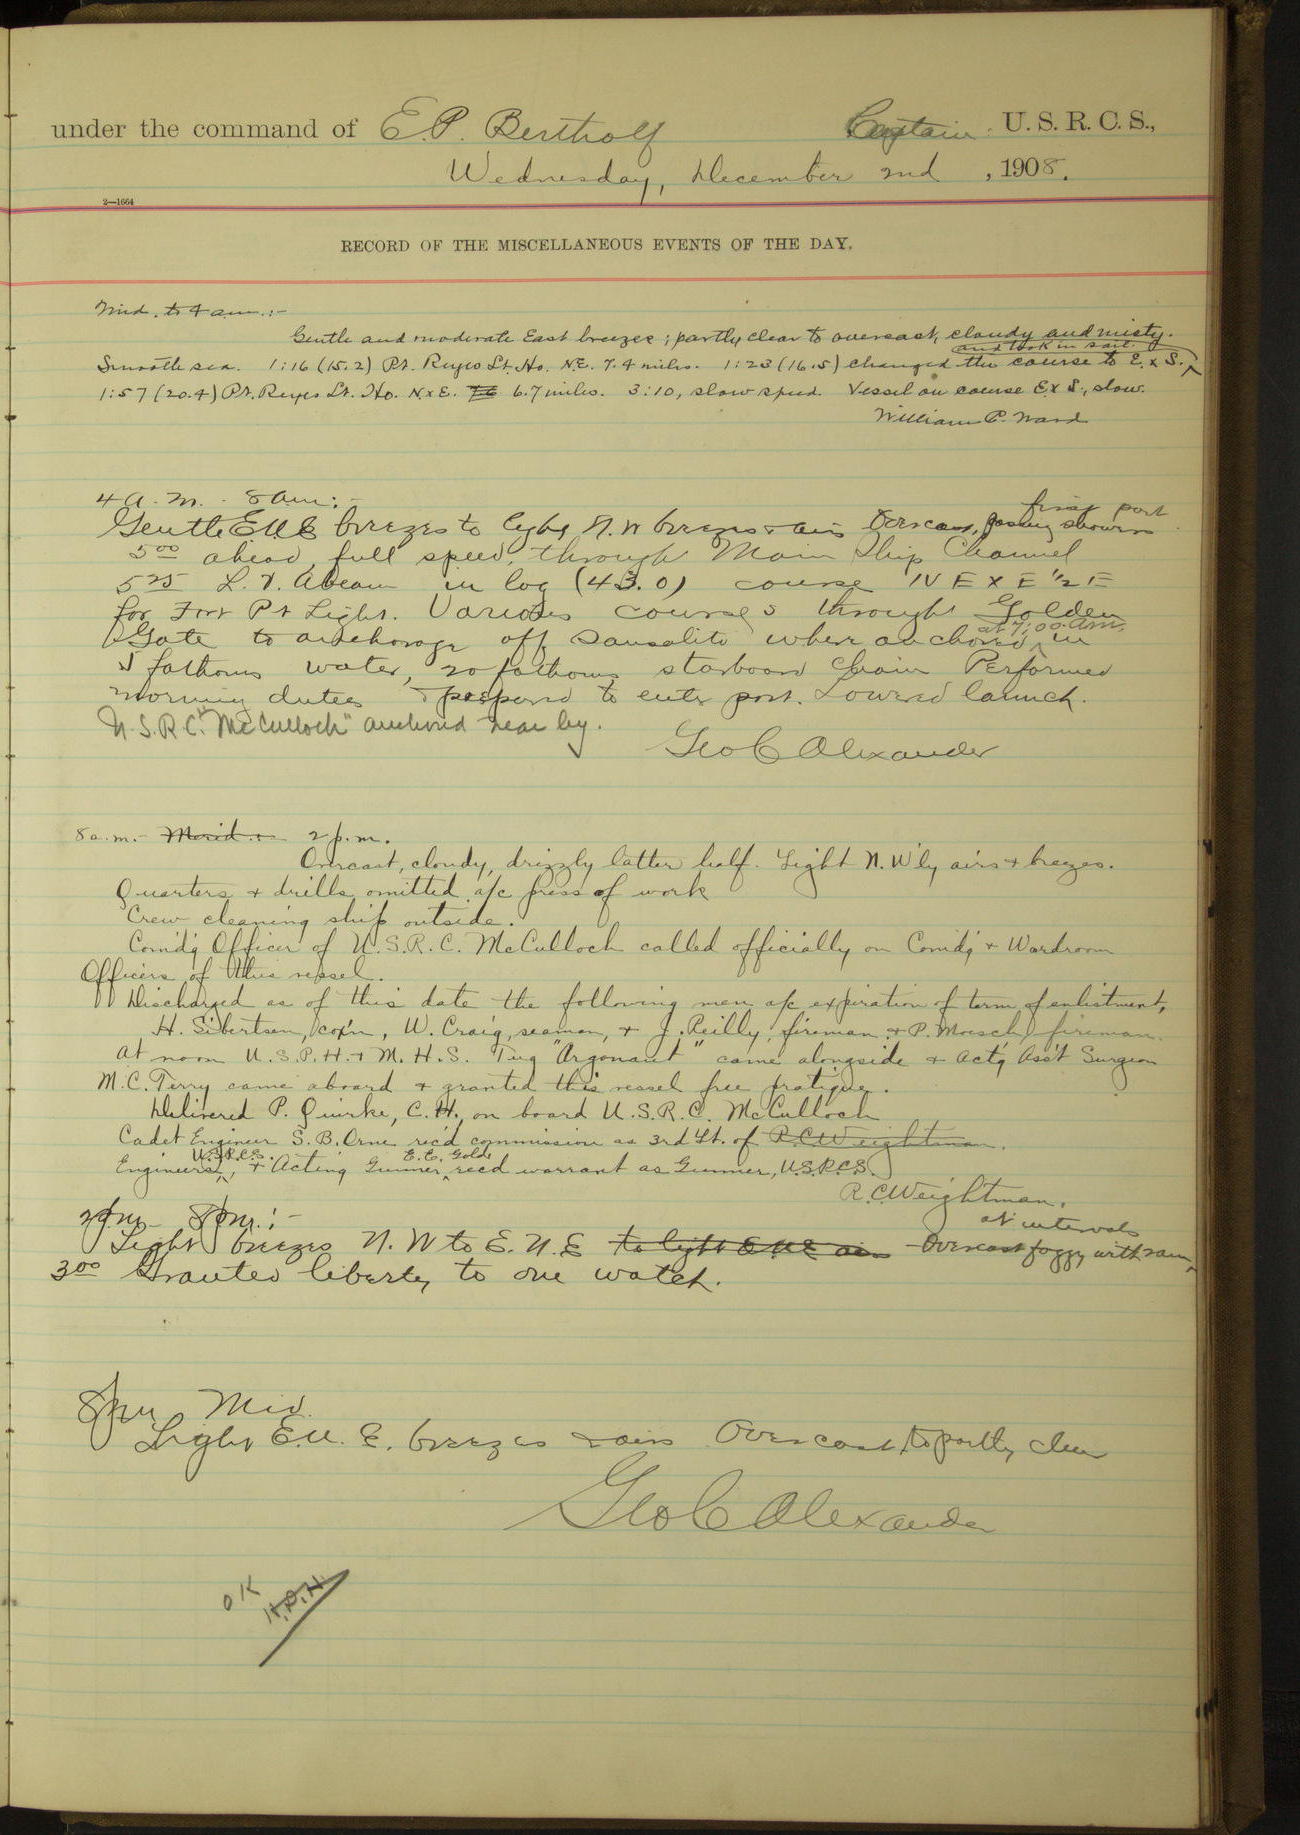 under the command of E. P. Bertholf Captain U. S. R. C. S.,
Wednesday, December 2nd, 1908.
2—1664
RECORD OF THE MISCELLANEOUS EVENTS OF THE DAY.
Mid. to 4 a.m.:-
Gentle and moderate East breezes; partly clear to overcast, cloudy and misty.
and took in sail.
Smooth sea. 1:16 (15.2) Pt. Reyes Lt. Ho. N.E. 7.4 miles. 1:23 (16.5) changed the course to E. x S.,
1:57 (20.4) Pt. Reyes Lt. Ho. N x E. 6.7 miles. 3:10, slow speed. Vessel on course E x S, slow.
William P. Ward
4 a.m. - 8 a.m.:-
first part
Gentle E.N.E breezes to light N.W breezes & airs Overcast, passing showers
5 00 ahead full speed, through Main Ship Channel
5 25 L. V. Abeam in log (43.0) course N E x E 1/2 E
for Fort Pt Light. Various courses through Golden
at 7:00 a.m.
Gate to anchorage off Sausalito where anchored in
5 fathoms water, 20 fathoms starboard chain Performed
morning duties & prepared to enter port. Lowered launch.
U.S.R.C. "McCulloch" anchored near by.
Geo C Alexander
8 a.m. - Merid.:- 2 p.m.
Overcast, cloudy, drizzly latter half. Light N. W'ly airs & breezes.
Quarters & drills omitted a/c press of work
Crew cleaning ship outside.
Com'd'g Officer of U.S.R.C. McCulloch called officially on Com'd'g & Wardroom
Officers of this vessel.
Discharged as of this date the following men a/c expiration of term of enlistment,
H. Sibertsen, cox'n, W. Craig, seaman, & J. Reilly, fireman & P. Moesch, fireman.
At noon U.S.P.H. & M.H.S. Tug "Argonaut" came alongside & Act'g Ass't Surgeon
M.C. Terry came aboard & granted this vessel free pratique.
Delivered P. Quirke, C.H., on board U.S.R.C. McCulloch
Cadet Engineer S. B. Orne rec'd commission as 3rd Lt. of R.C. Weightman.
U.S.R.C.S. E.E. Gold
Engineers, & Acting Gunner, rec'd warrant as Gunner, U.S.R.C.S.
R. C. Weightman.
2 pm - 8 pm.:-
at intervals
Light breezes N. W to E. N. E to light E N E airs Overcast foggy with rain
3 00 Granted liberty to one watch.
8 pm Mid.
Light E.N.E. breezes & airs Overcast to partly clear
Geo C Alexander
OK